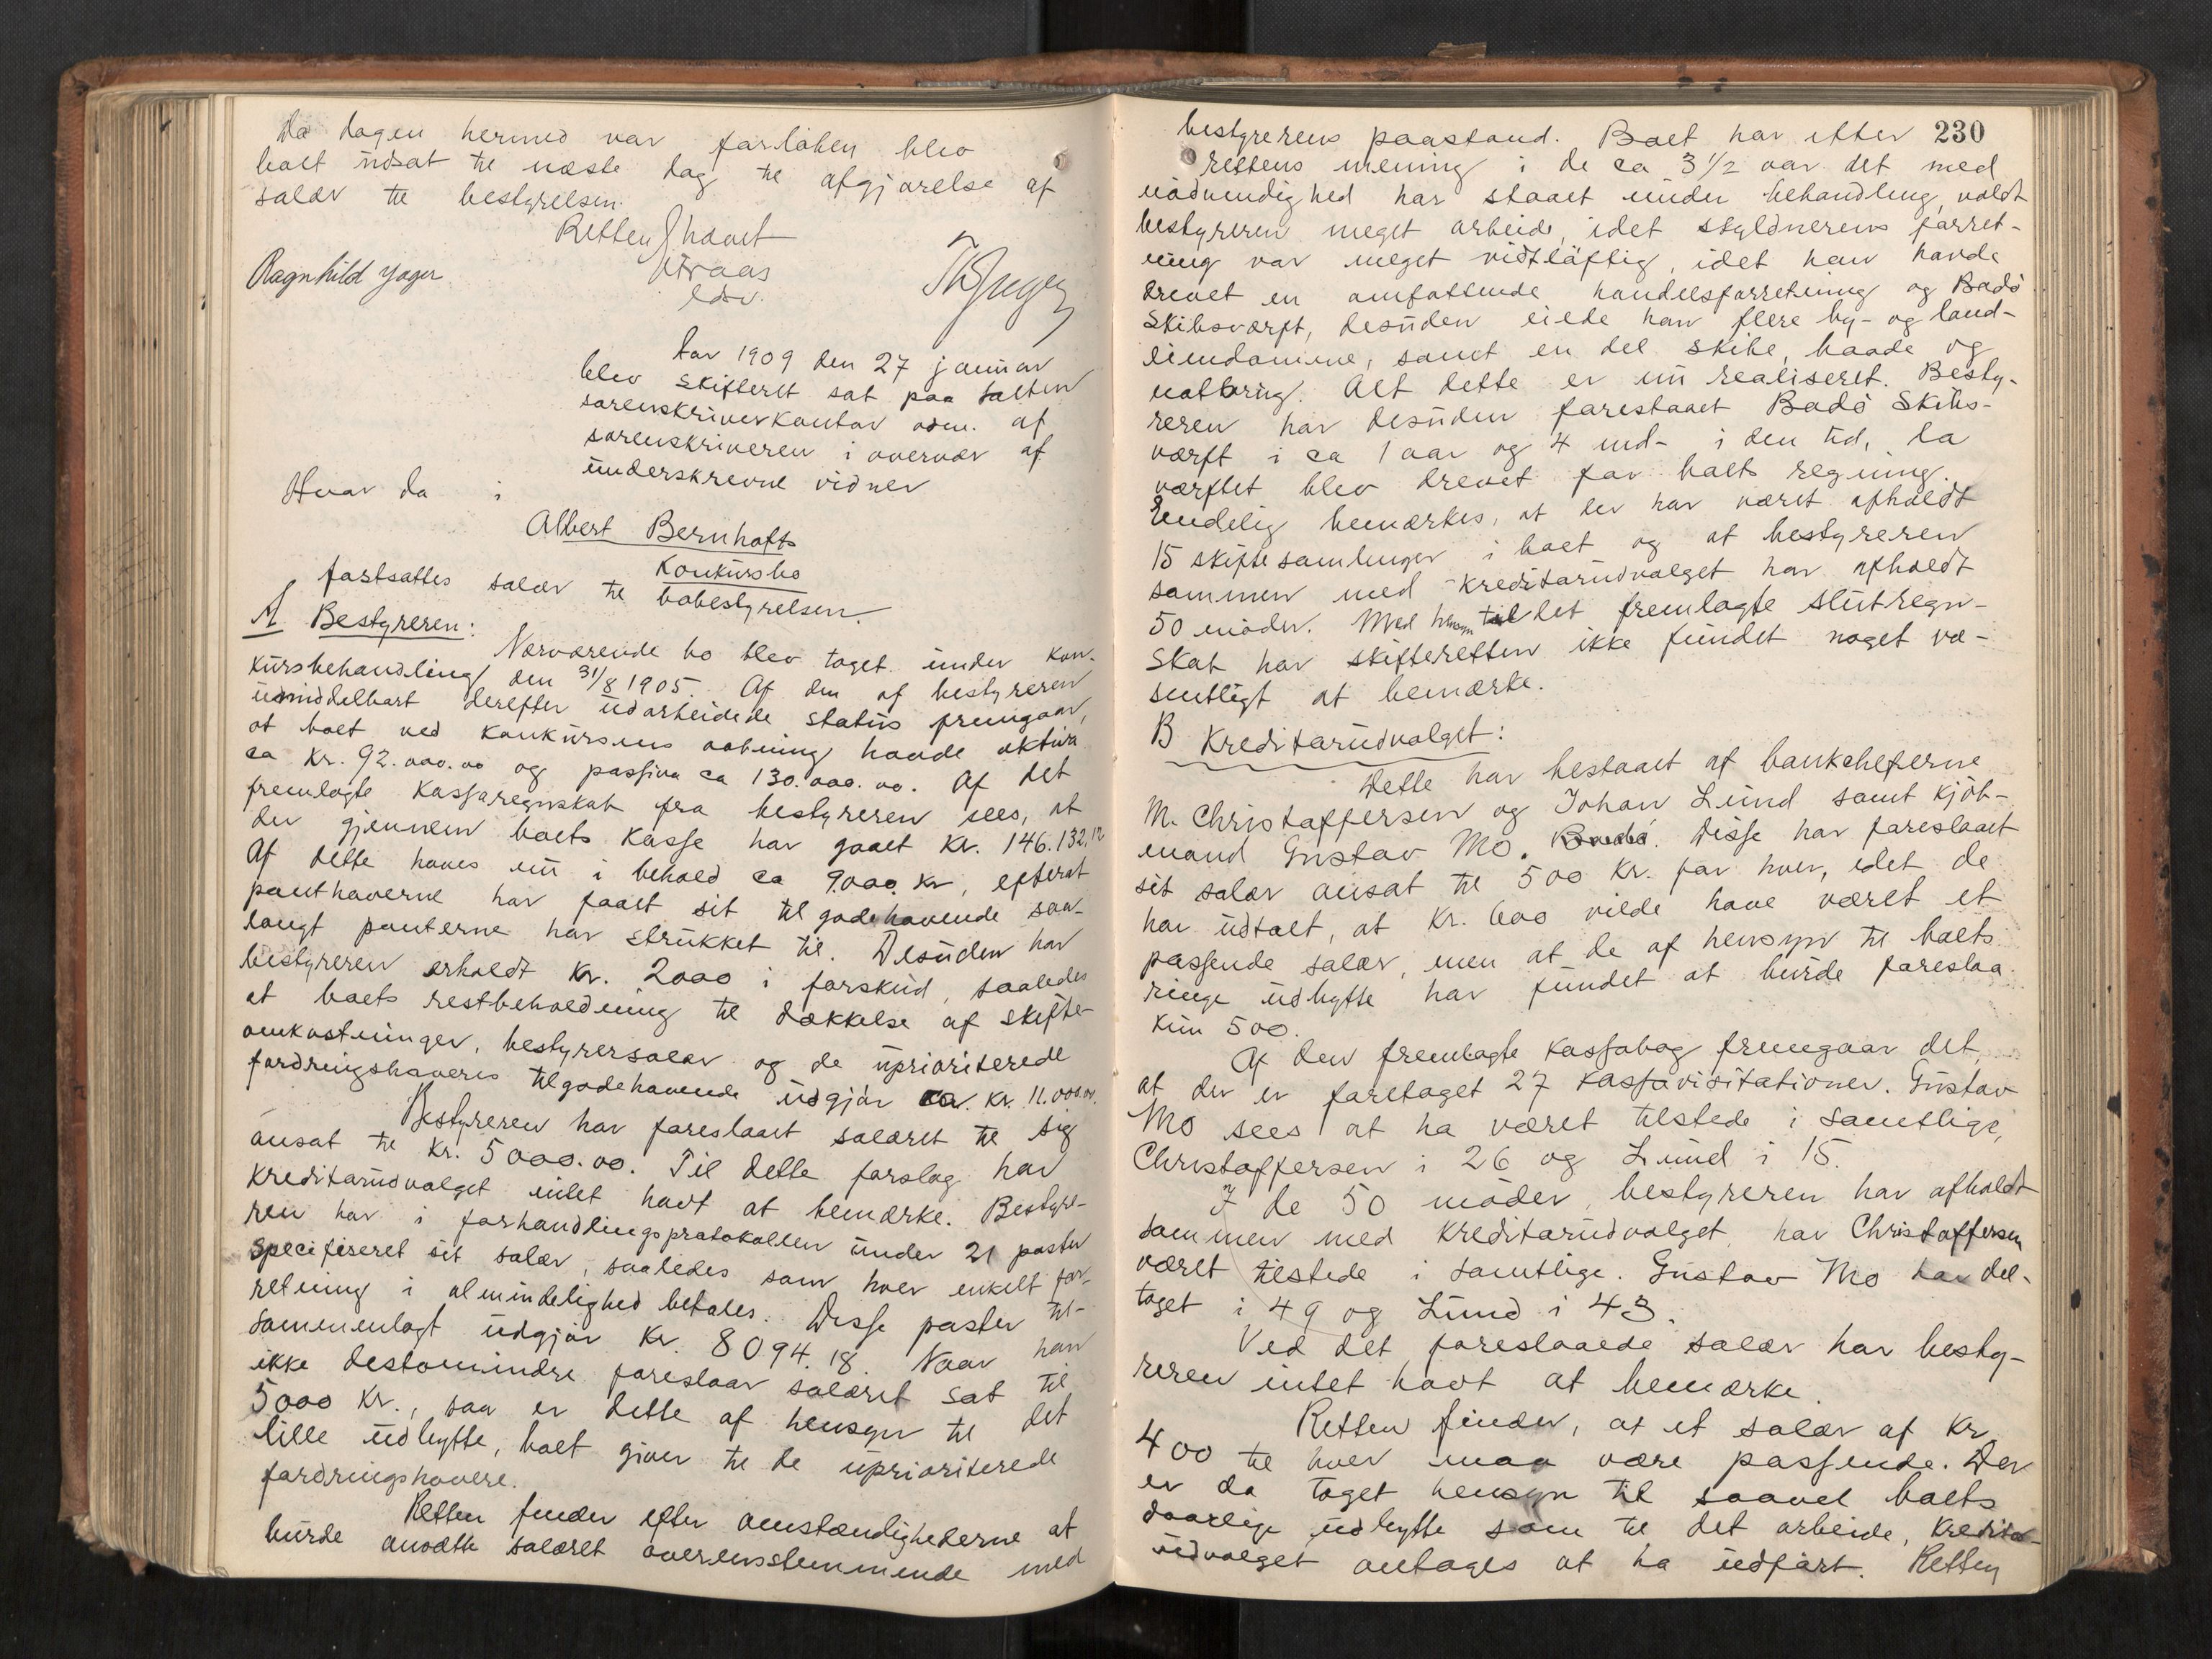 Da dagen hermed var forløben blev
boet udsat til næste dag til afgjørelse af
salær til bestyrelsen.
Retten hævet
Ragnhild Jager
Aar 1909 den 27 januar
blev skifteret sat paa Salten
sorenskriverkontor adm. af
sorenskriveren i overvær af
underskrevne vidner
Hvor da i
Albert Bernhofts
Konkursbo
fastsattes salær til bobestyrelsen.
A Bestyreren:
Nærværende bo blev taget under kon-
kursbehandling den 31/8 1905. Af den af bestyreren
umiddelbart derefter udarbeidede status fremgaar,
at boet ved konkursens aabning havde aktiva
ca kr. 92.000.00 og passiva ca 130.000.00. Af det
fremlagte kassaregnskab fra bestyreren sees, at
der gjennem boets kasse har gaaet kr. 146.132,12
Af dette haves nu i behold ca 9000 kr, efterat
panthaverne har faaet sit tilgodehavende saa-
langt panterne har strukket til. Desuden har
bestyreren erholdt kr. 2000 i forskud, saaledes
at boets restbeholdning til dækkelse af skifte-
omkostninger, bestyrersalær og de uprioriterede
fordringshaveres tilgodehavende udgjør ca. kr. 11.000.00.
Bestyreren har foreslaaet salæret til sig
ansat til kr. 5000.00. Til dette forslag har
kreditorudvalget intet havt at bemærke. Bestyre-
ren har i forhandlingsprotokollen under 21 poster
specifiseret sit salær, saaledes som hver enkelt for-
retning i almindelighed betales. Disse poster til-
sammenlagt udgjør kr. 8094.18. Naar han
ikke destomindre foreslaar salæret sat til
5000 kr., saa er dette af hensyn til det
lille udbytte, boet giver til de uprioriterede
fordringshavere.
Retten finder efter omstændighederne at
burde ansætte salæret overensstemmende med
230
bestyrerens paastand. Boet har efter
rettens mening i de ca 3 1/2 aar det med
nødvendighed har staaet under behandling, voldt
bestyreren meget arbeide, idet skyldnerens forret-
ning var meget vidtløftig, idet han havde
drevet en omfattende handelsforretning og Bodø
Skibsværft, desuden eiede han flere by- og land-
eiendomme, samt en del skibe, baade og
notbrug. Alt dette er nu realiseret. Besty-
reren har desuden forestaaet Bodø Skibs-
værft i ca 1 aar og 4 md- i den tid, da
værftet blev drevet for boets regning.
Endelig bemærkes, at der har været afholdt
15 skiftesamlinger i boet og at bestyreren
sammen med kreditorudvalget har afholdt
50 møder. Med hensyn til det fremlagte slutregn-
skab har skifteretten ikke fundet noget væ-
sentligt at bemærke.
B Kreditorudvalget:
Dette har bestaaet af bankcheferne
M. Christoffersen og Johan Lund samt kjøb-
mand Gustav Mo. Disse har foreslaaet
sit salær ansat til 500 kr. for hver, idet de
har udtalt, at kr. 600 vilde have været et
passende salær, men at de af hensyn til boets
ringe udbytte har fundet at burde foreslaa
kun 500.
Af den fremlagte kassabog fremgaar det,
at der er foretaget 27 kassavisitationer. Gustav
Mo sees at ha været tilstede i samtlige,
Christoffersen i 26 og Lund i 15.
I de 50 møder, bestyreren har afholdt
sammen med kreditorudvalget, har Christoffersen
været tilstede i samtlige. Gustav Mo har del-
taget i 49 og Lund i 43.
Ved det foreslaaede salær har besty-
reren intet havt at bemærke.
Retten finder, at et salær af kr
400 til hver maa være passende. Der
er da taget hensyn til saavel boets
daarlige udbytte som til det arbeide, kreditor-
udvalget antages at ha udført. Retten